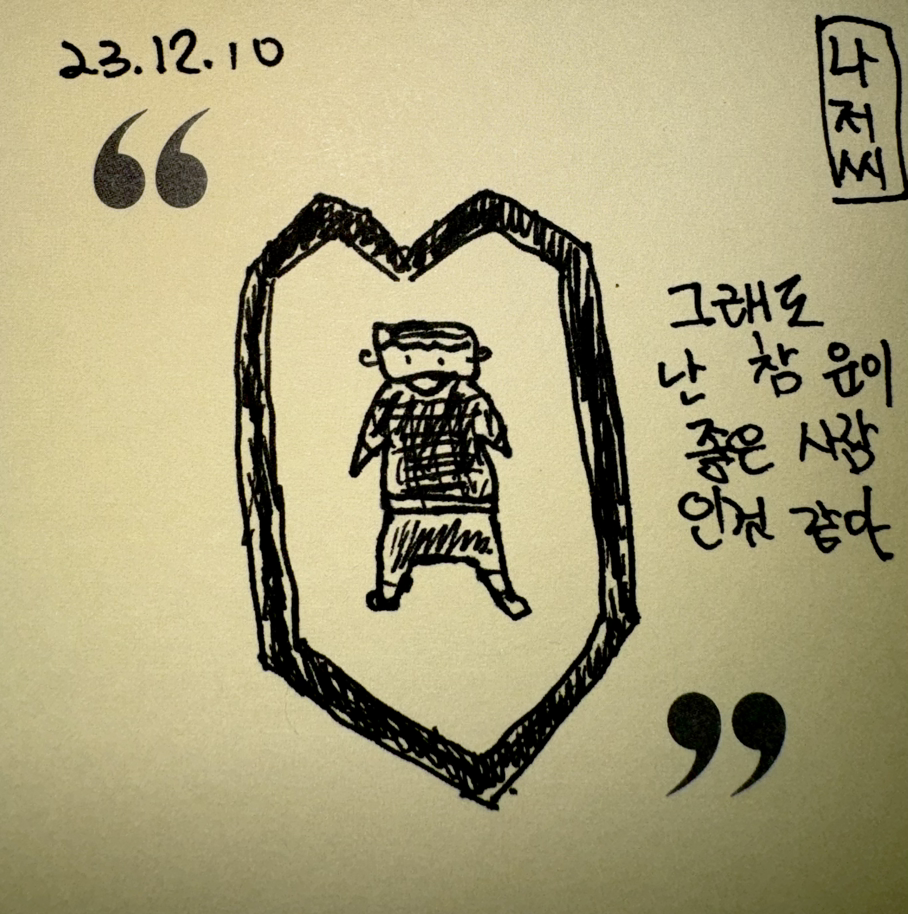 23.12.10
나
저
씨
“
그래도
난 참 운이
좋은 사람
인것 같아
”